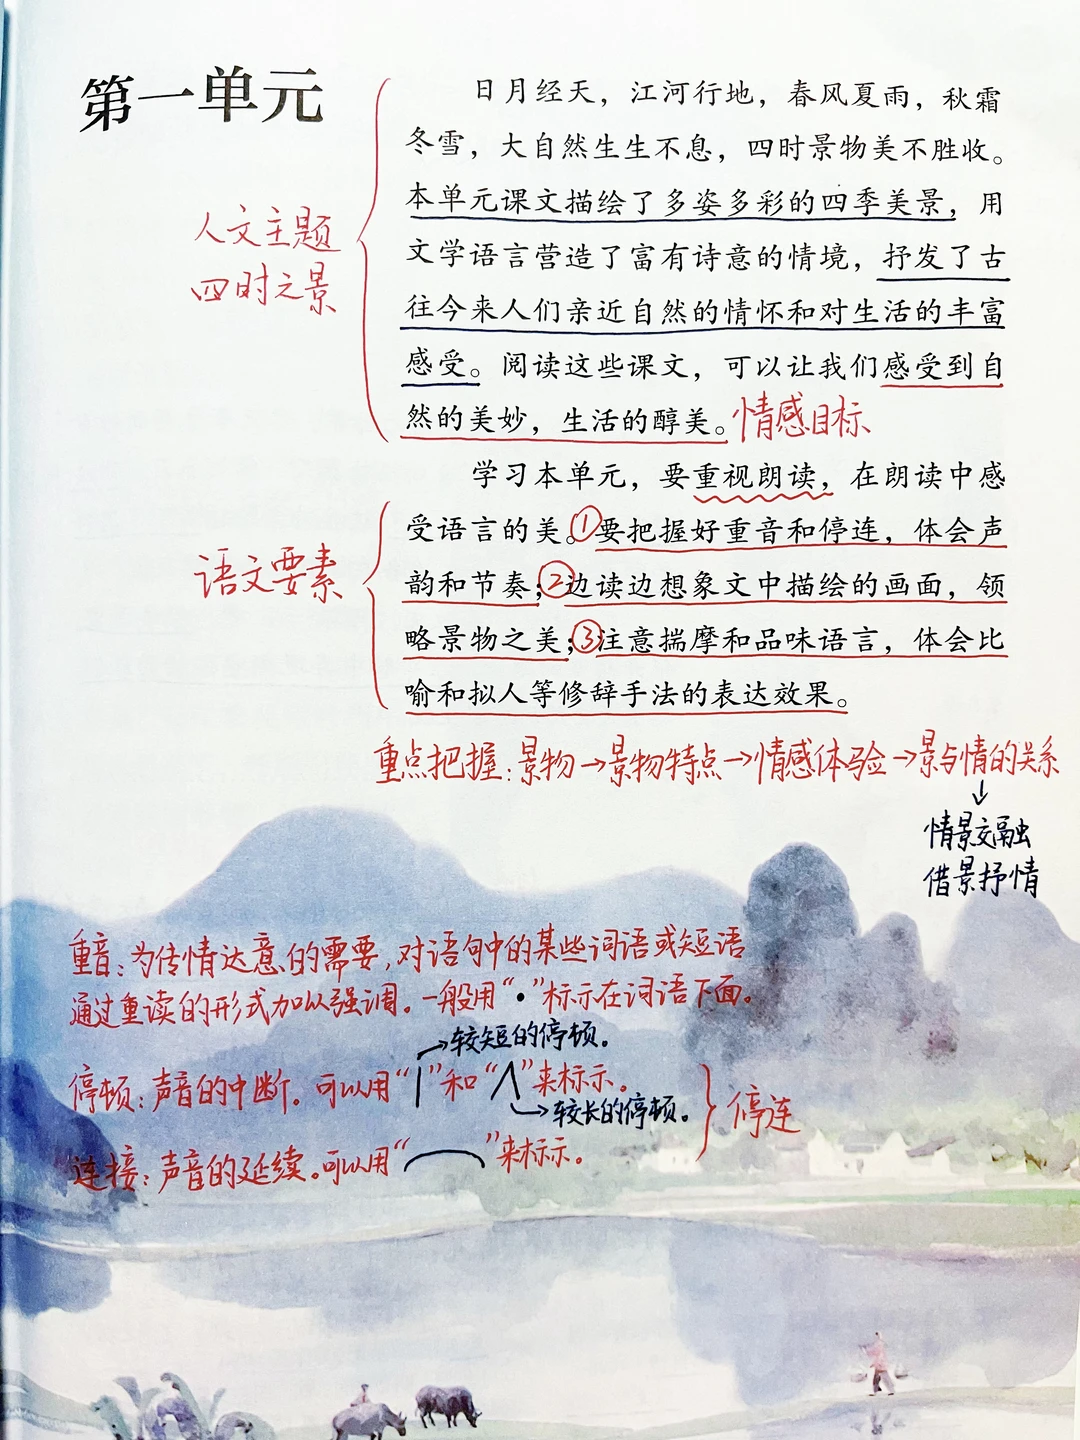 第一单元
日月经天，江河行地，春风夏雨，秋霜
冬雪，大自然生生不息，四时景物美不胜收。
本单元课文描绘了多姿多彩的四季美景，用
文学语言营造了富有诗意的情境，抒发了古
往今来人们亲近自然的情怀和对生活的丰富
感受。阅读这些课文，可以让我们感受到自
然的美妙，生活的醇美。情感目标
人文主题
四时之景
学习本单元，要重视朗读，在朗读中感
受语言的美。①要把握好重音和停连，体会声
韵和节奏；②边读边想象文中描绘的画面，领
略景物之美；③注意揣摩和品味语言，体会比
喻和拟人等修辞手法的表达效果。
语文要素
重点把握：景物→景物特点→情感体验→景与情的关系
↓
情景交融
借景抒情
重音：为传情达意的需要，对语句中的某些词语或短语
通过重读的形式加以强调。一般用“•”标示在词语下面。
→较短的停顿。
停顿：声音的中断。可以用“|”和“∧”来标示。
→较长的停顿。
连接：声音的延续。可以用“⌒”来标示。
停连